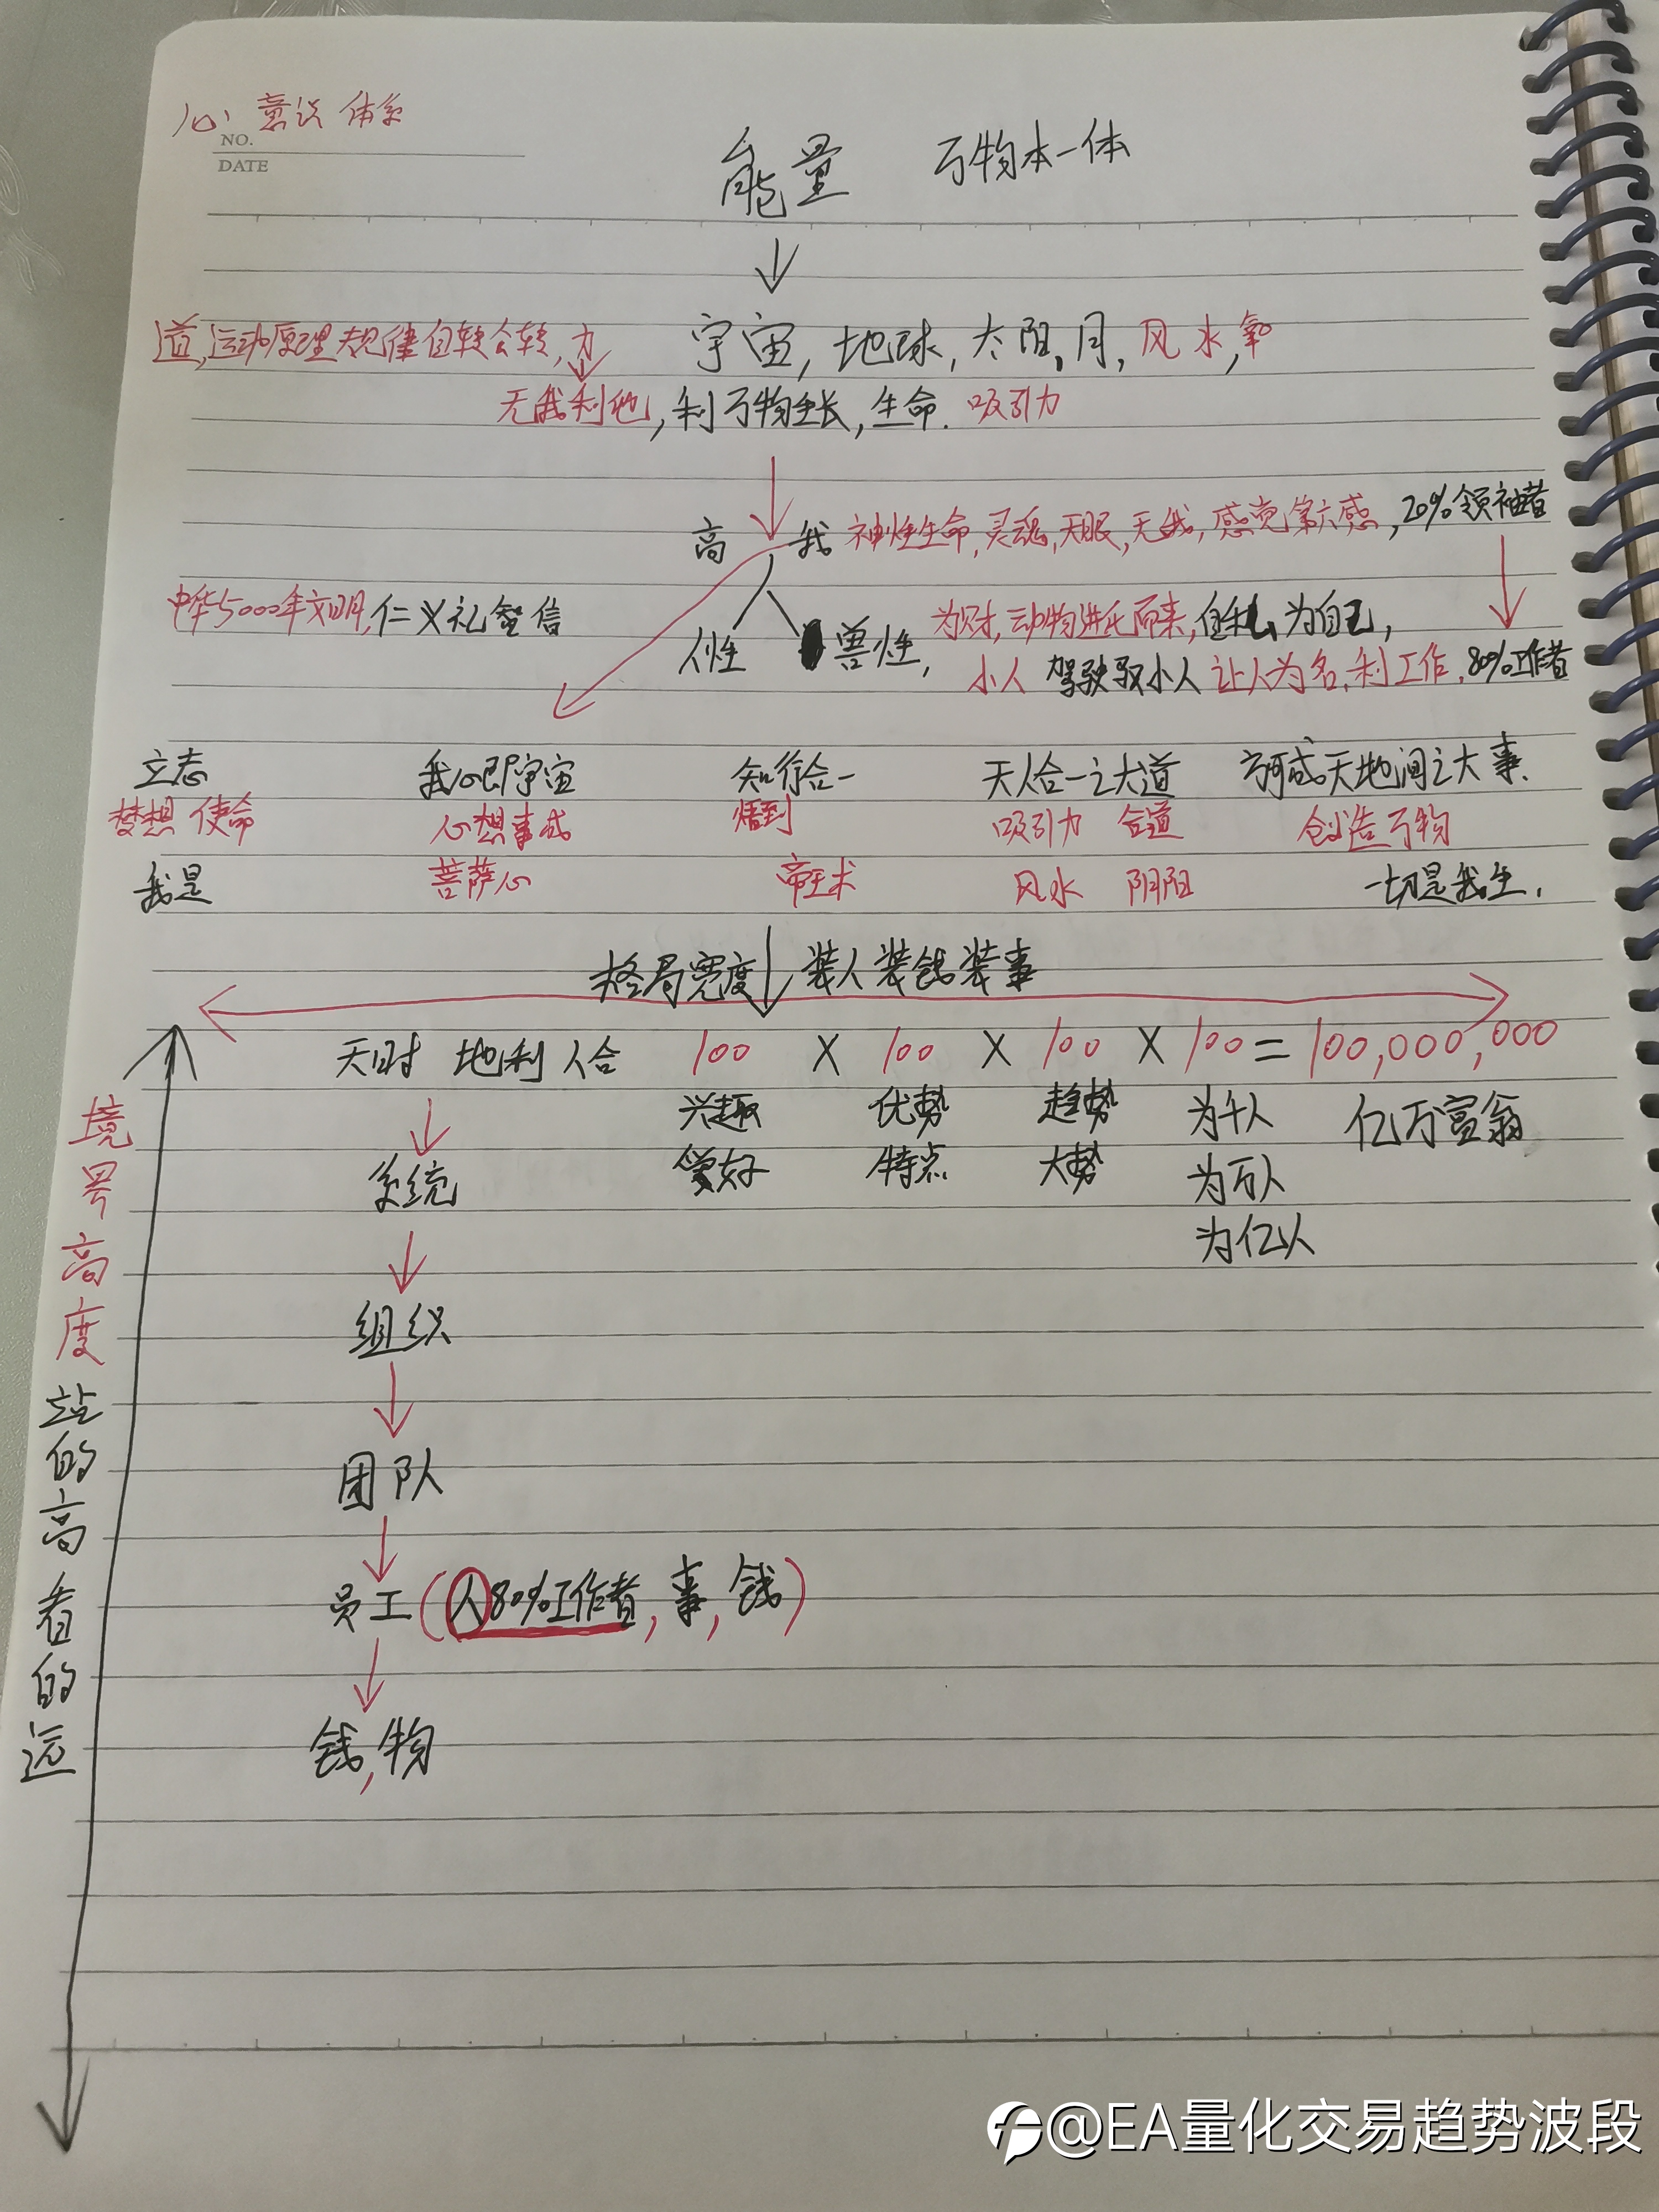 心 意识 体系
NO.
DATE
能量 万物本一体
道,运动原理规律自转公转,力 宇宙,地球,太阳,月,风水,氧
无我利他,利万物生长,生命. 吸引力
高 我 神性生命,灵魂,天眼,无我,感觉第六感,20%领袖者
中华5000年文明,仁义礼智信
人性 兽性, 为财,动物进化而来,自私,为自己,
小人 驾驶驭小人 让人为名,利工作,80%工作者
立志 我心即宇宙 知行合一 天人合一之大道 方可成天地间之大事.
梦想 使命 心想事成 悟到 吸引力 合道 创造万物
我是 菩萨心 帝王术 风水 阴阳 一切是我生.
格局宽度 装人装钱装事
天时 地利 人合 100 X 100 X 100 X 100 = 100,000,000
兴趣 优势 趋势 为千人 亿万富翁
爱好 特点 大势 为万人
为亿人
系统
组织
团队
员工(人80%工作者,事,钱)
钱,物
境界高度站的高看的远
@EA量化交易趋势波段